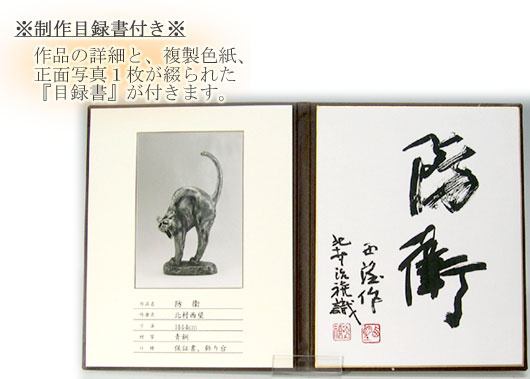 ※制作目録書付き※
作品の詳細と、複製色紙、
正面写真１枚が綴られた
『目録書』が付きます。
作品名 防衛
作者名 北村西望
寸法
材質 青銅
仕様 保証書、飾り台
防衛
西望作